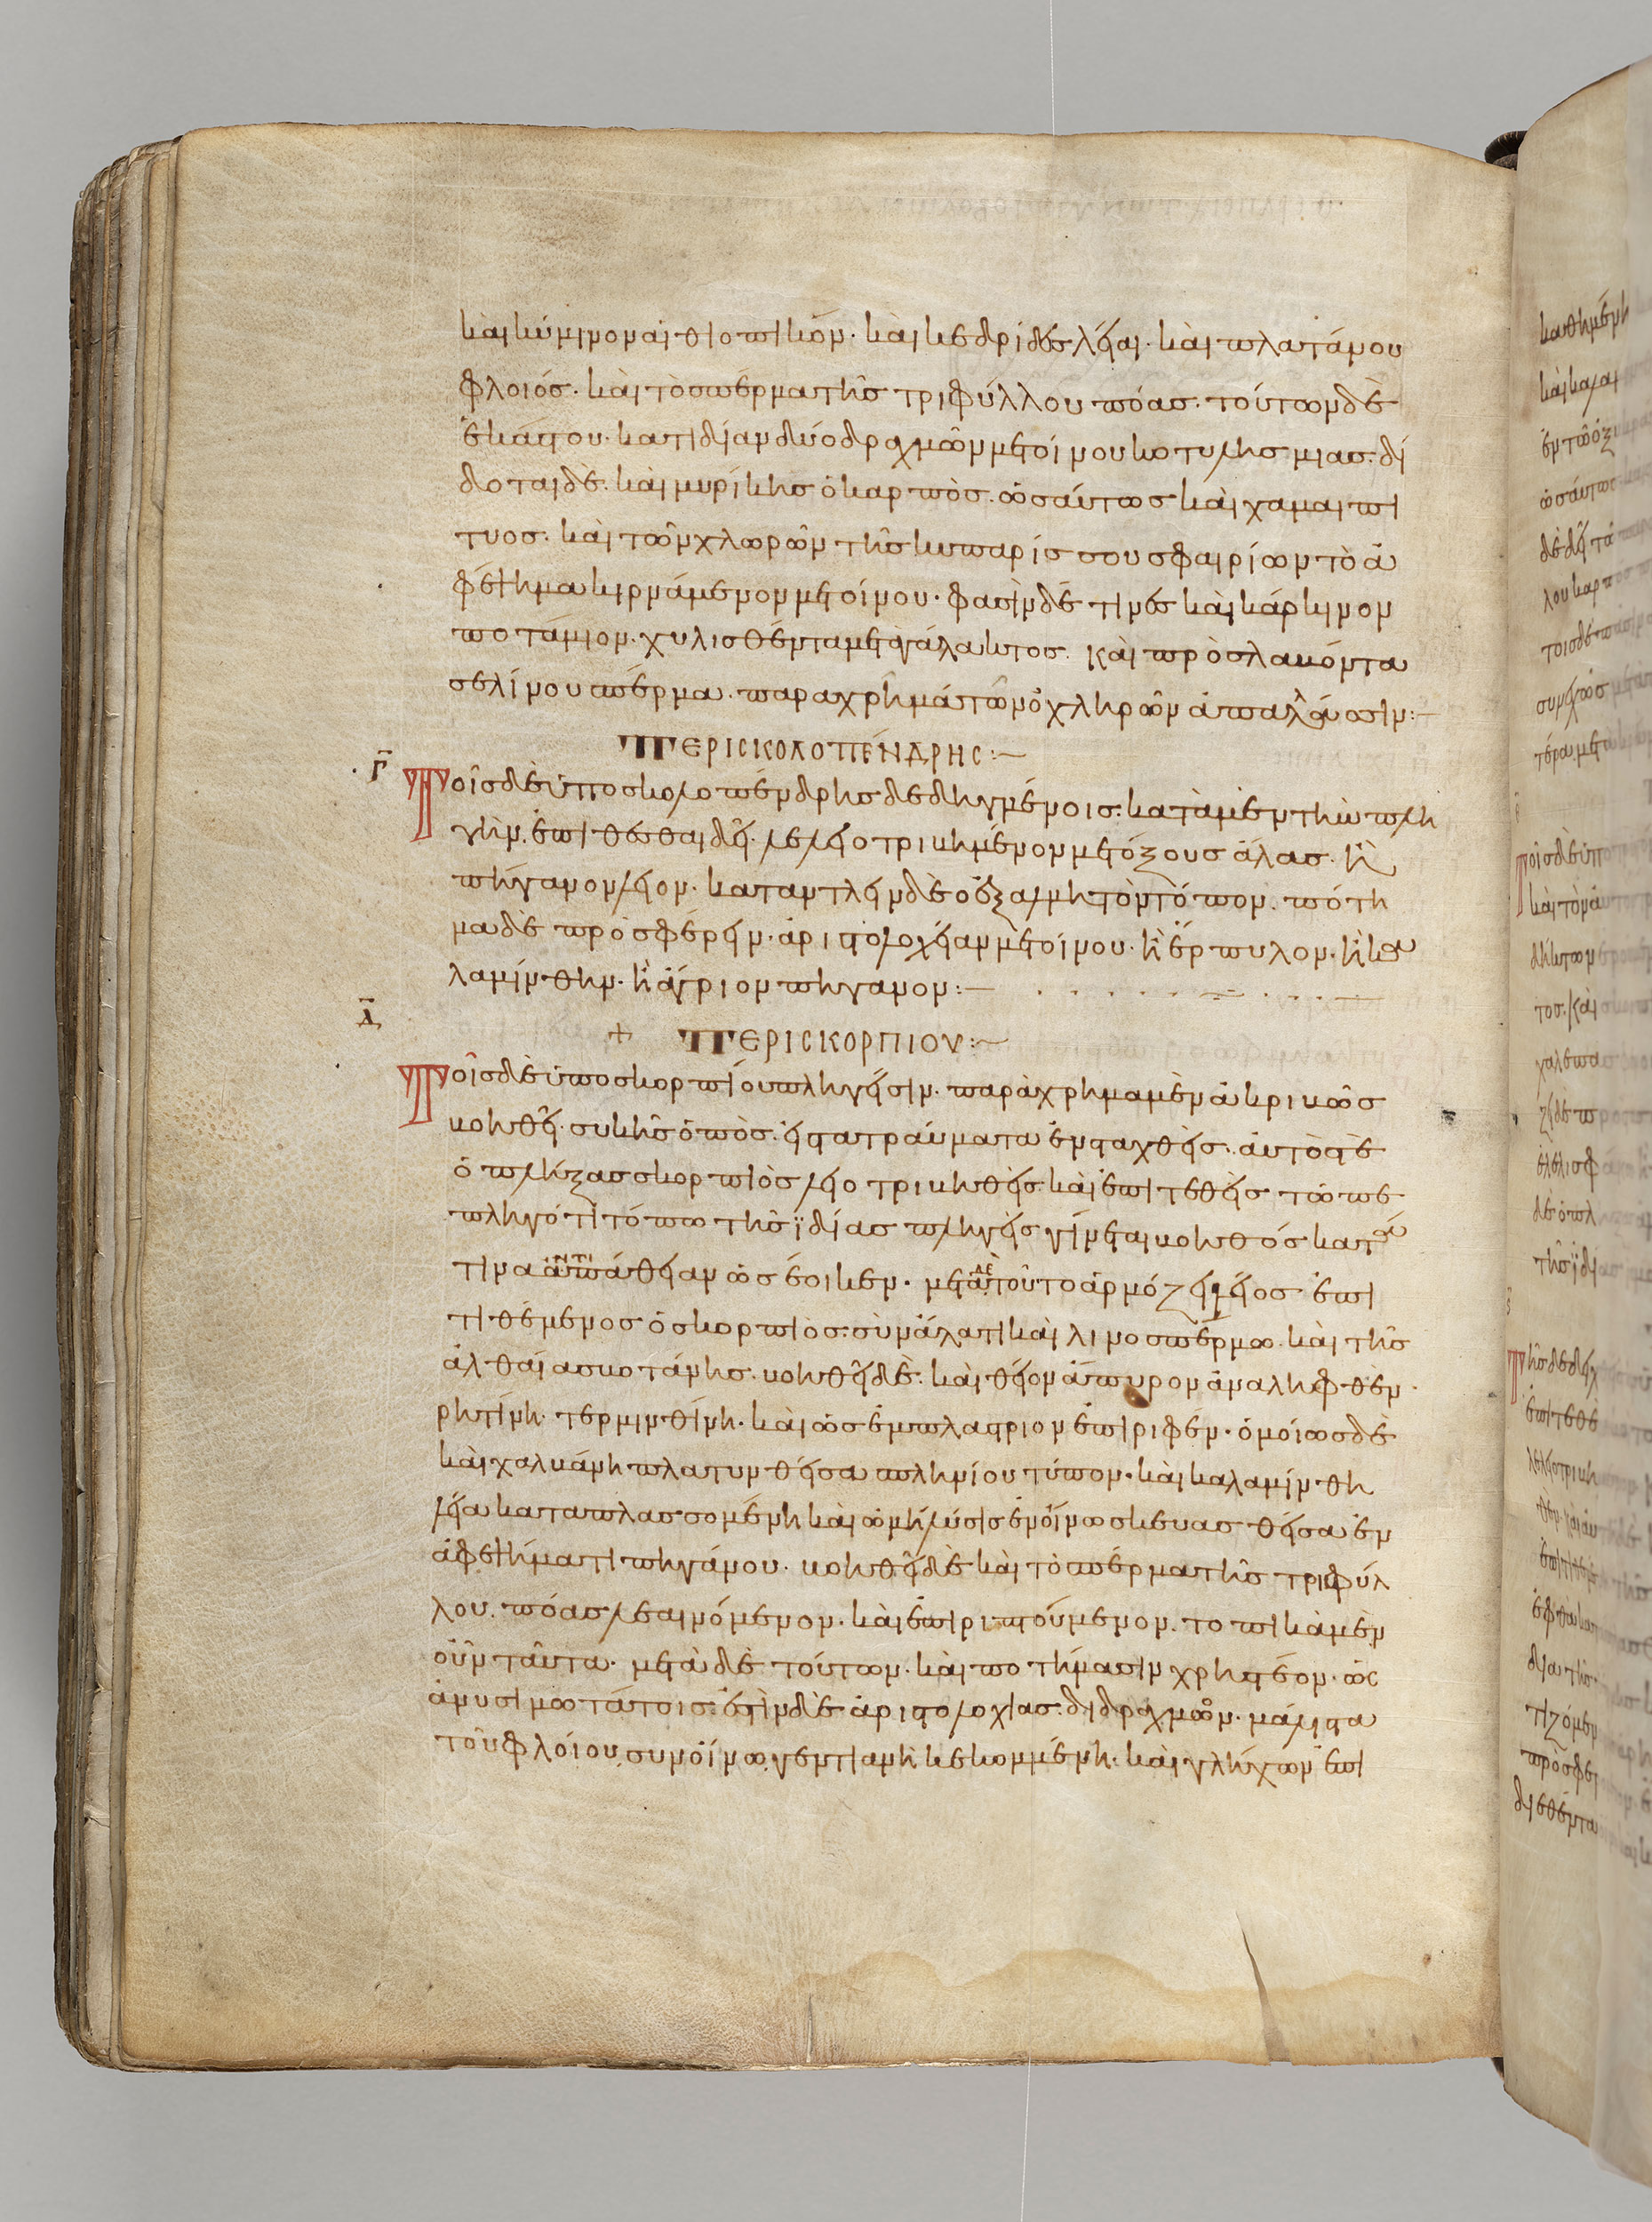 καὶ κύμινον αἰθιοπικόν· καὶ κεδρίδες λεῖαι· καὶ πλατάνου
φλοιός· καὶ τὸ σπέρμα τῆς τριφύλλου πόας· τούτων δὲ
ἑκάστου· κατιδίαν δύο δραχμῶν μετοίνου κοτύλης μιας· δί
δοται δὲ· καὶ μυρίκης ὁ καρπὸς· ὡσαύτως καὶ χαμαιπί
τυος· καὶ τῶν χλωρῶν τῆς κυπαρίσσου σφαιρίων τὸ ἀ
φέψημα κιρνάμενον μετοίνου· φασὶν δέ τινές καὶ κάρκινον
ποτάμιον· χυλισθέντα μετὰ γάλακτος· καὶ προσλαβόντα
σελίνου σπέρμα· παραχρῆμα τῶν ὀχληρῶν ἀπαλλάσσιν:—
ΠΕΡΙ ΣΚΟΛΟΠΕΝΔΡΗΣ:—
Γ
Τοῖς δὲ ὑπο σκολοπένδρης δεδηγμένοις· κατὰ μὲν τὴν πλη
γὴν· ἐπιθέσθαι δεῖ· λελειοτριβημένον μετόξους ἅλας· κ
πήγανον λεῖον· καταντλεῖν δὲ ὀξάλμη τὸν τόπον· πότη
μα δὲ προσφέρειν· ἀριστολοχείαν μετοίνου· κ ἕρπυλον· κ κα
λαμίνθην· κ ἄγριον πήγανον:—
Δ
+ ΠΕΡΙ ΣΚΟΡΠΙΟΥ:—
Τοῖς δὲ ὑπο σκορπίου πληγεῖσιν· παραχρῆμα μὲν ἀκριβῶς
βοηθεῖ· συκῆς ὀπὸς· εἰς τὰ τραύματα ἐνσταχθεὶς· αὐτὸς τὲ
ὁ πλήξας σκορπιὸς λειοτριβηθεὶς καὶ ἐπιτεθεὶς τῶ πε
πληγότι τόπω τῆς ϊδίας πληγῆς γίνεται βοηθός κατ
τινα ἀντιπάθειαν ὡς ἔοικεν· μετὰ δὲ τοῦτο ἁρμόζει λεῖος ἐπι
τιθέμενος ὁ σκορπιος· σὺν ἅλατι καὶ λινοσπέρμω· καὶ τῆς
ἀλθαίας βοτάνης· βοηθεῖ δὲ· καὶ θεῖον ἄπυρον ἀναληφθὲν·
ρητίνη· τερμινθίνη· καὶ ὡς ἔμπλαστριον ἐπιριφέν· ὁμοίως δὲ
καὶ χαλβάνη πλατυνθεῖσα σπληνίου τύπον· καὶ καλαμίνθη
λεῖα καταπλασσομένη καὶ ὠμὴ λύσις ἐν οἴνω σκευασθεῖσα ἐν
ἀφεψήματι πηγάνου· βοηθεῖ δὲ καὶ τὸ σπέρμα τῆς τριφύλ
λου· πόας λεαινόμενον· καὶ ἐπιριπτούμενον· τοπικὰ μὲν
οὖν ταῦτα· μετὰ δὲ τούτων· καὶ ποτήμασιν χρηστέον· ὡς
ἀνυσιμωτάτοις· ἐστὶν δὲ ἀριστολοχίας· δι δραχμῶν· μάλιστα
τοῦ φλόιου συν οἴνω γεντιανὴ κεκομμένη· καὶ γλήχων ἑπι